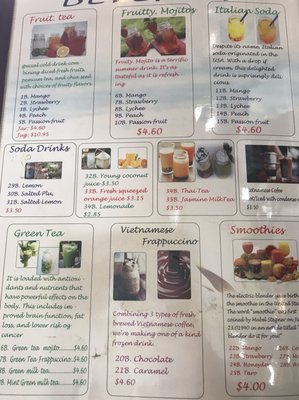 Fruit tea
special cold drink com-
bining diced fresh fruits,
premium tea, and chia seed
with choices of fruity flavors
1B. Mango
2B. Strawberry
3B. Lychee
4B. Peach
5B. Passion fruit
Jar: $4.60
Jug: $10.95
Fruity. Mojitos
Fruity. Mojito is a terrific
summer drink. It's as
tasteful as it is refresh
ing
6B. Mango
7B. Strawberry
8B. Lychee
9B. Peach
10B. Passion fruit
$4.60
Italian Soda
Despite its name, Italian
soda originated in the
USA. With a drop of
cream this delighted
drink is suprisingly deli
cious
11B. Mango
12B. Strawberry
13B. Lychee
14B. Peach
15B. Passion fruit
$4.60
Soda Drinks
29B. Lemon
30B. Salted Plu
31B. Salted Lemon
$3.50
32B. Young coconut
juice $3.50
33B. Fresh squeezed
orange juice $3.15
34B. Lemonade
$2.85
34B. Thai Tea
35B. Jasmine MilkTea
$3.50
Vietnamese Coffee
W/Iced with condense
$3.50
Green Tea
It is loaded with antioxi
dants and nutrients that
have powerful effects on the
body. This includes im
proved brain function, fat
loss, and lower risk og
cancer
Green tea mojito $4.60
Green Tea Frappuccino $4.60
Green milk tea $4.60
Mint Green milk tea $4.60
Vietnamese
Frappuccino
Combining 3 types of fresh
brewed Vietnamese coffee,
we're making one of a kind
frozen drink.
20B. Chocolate
21B. Caramel
$4.60
Smoothies
The electric blender
the smoothie in the United
The word "smoothie" was first
coined by Mabel Stegner
blender do it for you"
22B. Mango
23B. Strawberry
24B. Honeydew
25B. Taro
$4.00